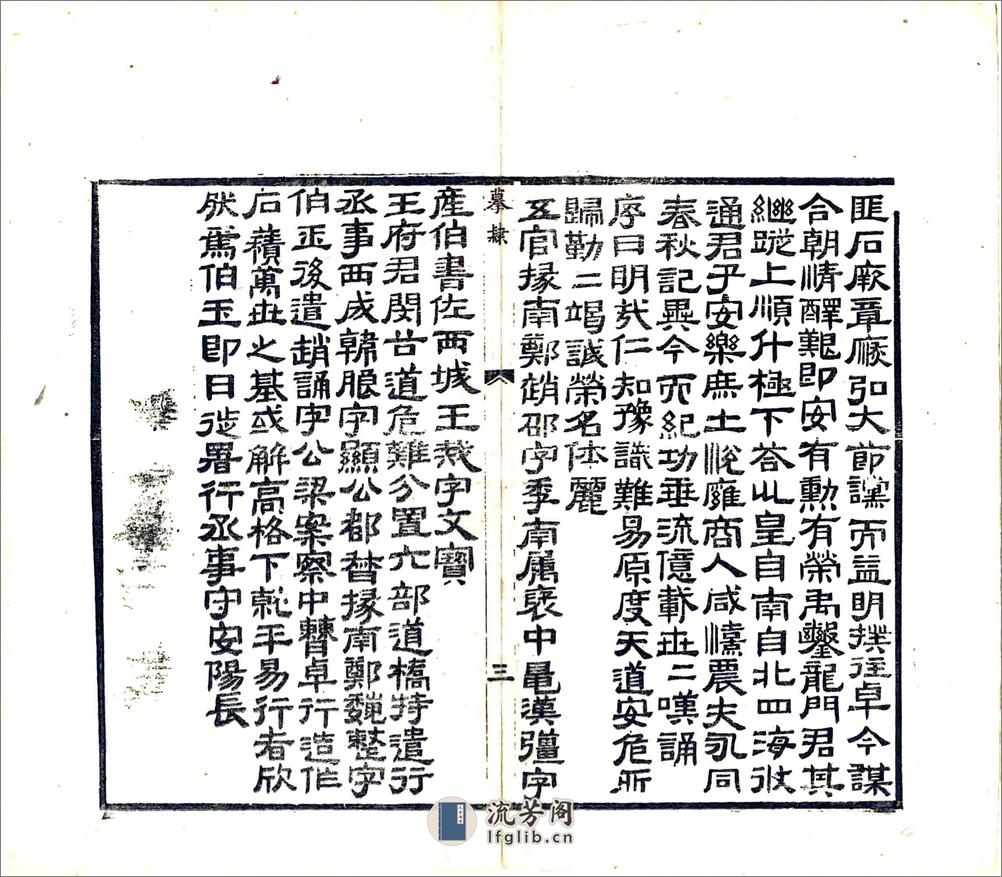 匪石厥章厥弘大節讜而益明揆往卓今謀
合朝情醳艱即安有勳有榮禹鑿龍門君其
繼蹤上順斗極下答巛皇自南自北四海攸
通君子安樂庶士悅雍商人咸憘農夫永同
春秋記異今而紀功垂流億載世二嘆誦
序曰明哉仁知豫識難易原度天道安危所
歸勤二竭誠榮名休麗
五官掾南鄭趙邵字季南屬褒中鼂漢彊字
摹隸
三
產伯書佐西城王戒字文寶
王府君閔谷道危難分置六部道橋特遣行
丞事西成韓朖字顯公都督掾南鄭魏整字
伯玉後遣趙誦字公梁案察中曹卓行造作
石積萬世之基或解高格下就平易行者欣
然焉伯玉即日徙署行丞事守安陽長
流芳阁
lfglib.cn